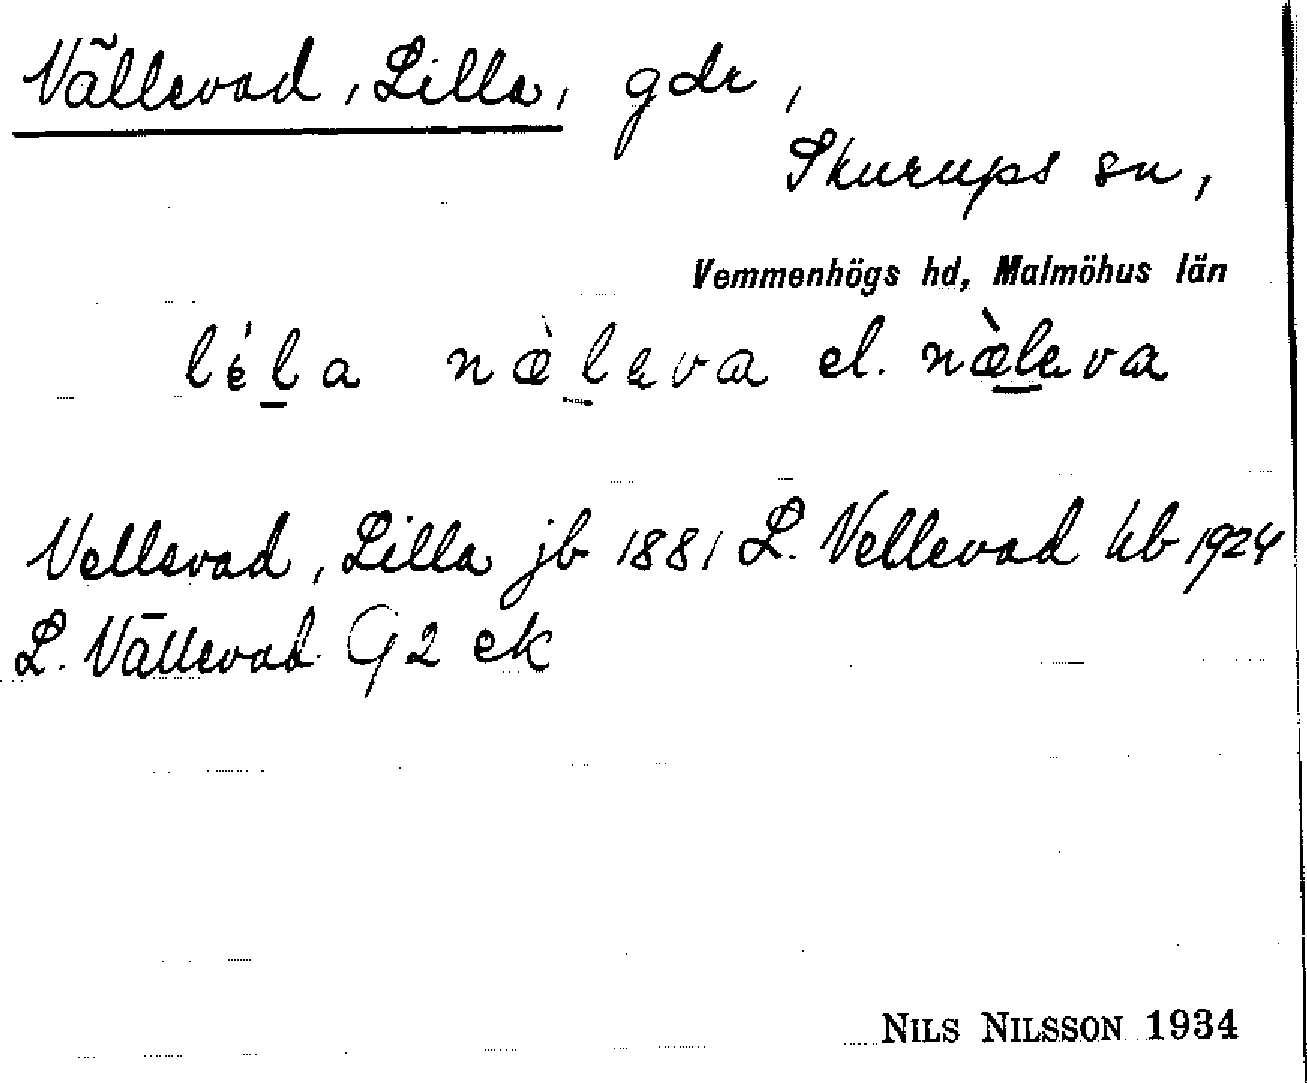 Vällevad, Lilla, gdr,
Skurups sn,
Vemmenhögs hd, Malmöhus län
léla næ̀leva el. næ̀leva
Vellevad, Lilla jb 1881 L. Vellevad kb 1924
L. Vällevad G 2 ek
NILS NILSSON 1934